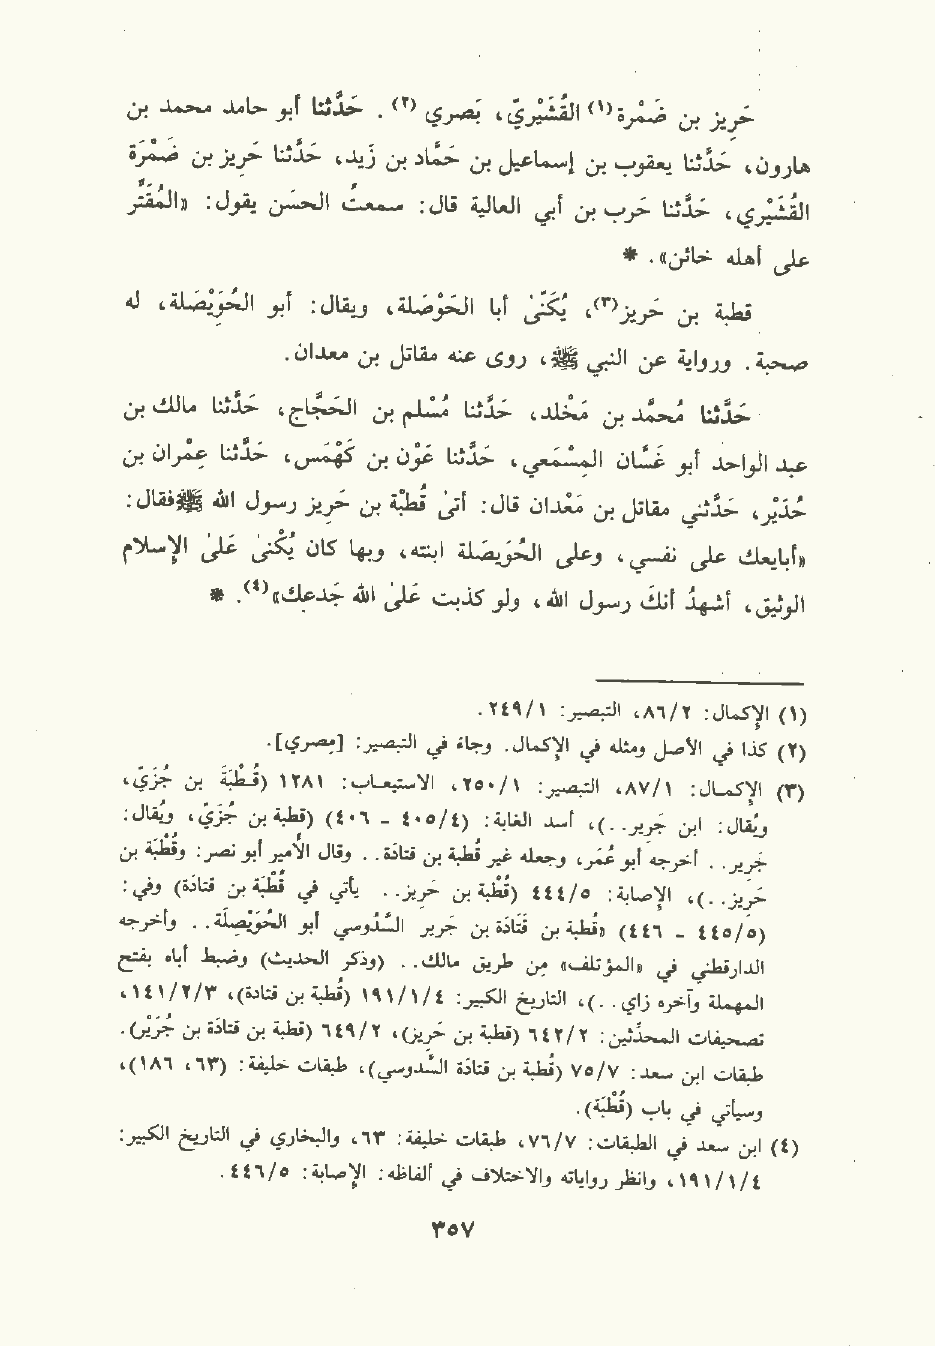 حَرِيز بن ضَمْرة(١) القُشَيْريّ، بَصري(٢). حَدَّثنا أبو حامد محمد بن
هارون، حَدَّثنا يعقوب بن إسماعيل بن حَمَّاد بن زيد، حَدَّثنا حَرِيز بن ضَمْرَة
القُشَيْري، حَدَّثنا حَرب بن أبي العالية قال: سمعتُ الحسَن يقول: «المُقَتِّر
على أهله خائن». *
قطبة بن حَرِيز(٣)، يُكَنَّىٰ أبا الحَوْصَلة، ويقال: أبو الحُوَيْصَلة، له
صحبة. ورواية عن النبي ﷺ، روى عنه مقاتل بن معدان.
حَدَّثنا مُحمَّد بن مَخْلد، حَدَّثنا مُسْلم بن الحَجَّاج، حَدَّثنا مالك بن
عبد الواحد أبو غَسَّان المِسْمَعي، حَدَّثنا عَوْن بن كَهْمَس، حَدَّثنا عِمْران بن
حُدَيْر، حَدَّثني مقاتل بن مَعْدان قال: أتىٰ قُطبْة بن حَرِيز رسول الله ﷺفقال:
«أبايعك على نفسي، وعلى الحُوَيصَلة ابنته، وبها كان يُكْنىٰ عَلىٰ الإسلام
الوثيق، أشهدُ أنكَ رسول الله، ولو كذبت عَلىٰ الله جَدعك»(٤). *
(١) الإكمال: ٨٦/٢، التبصير: ٢٤٩/١.
(٢) كذا في الأصل ومثله في الإكمال. وجاء في التبصير: [مصري].
(٣) الإكمال: ٨٧/١، التبصير: ٢٥٠/١، الاستيعاب: ١٢٨١ (قُطْبَةَ بن جُزَيّ،
ويُقال: ابن جَرِير..)، أسد الغابة: (٤٠٥/٤ - ٤٠٦) (قطبة بن جُزَيّ، ويُقال:
جَرِير.. أخرجه أبو عُمَر، وجعله غير قُطبة بن قتادَة.. وقال الأمير أبو نصر: وقُطْبَة بن
حَرِيز..)، الإصابة: ٤٤٤/٥ (قُطْبة بن حَرِيز.. يأتي في قُطْبَة بن قتادَة) وفي:
(٤٤٥/٥ - ٤٤٦) «قُطبة بن قَتَادَة بن جَرير السَّدُوسي أبو الحُوَيْصِلَة.. وأخرجه
الدارقطني في «المؤتلف» من طريق مالك.. (وذكر الحديث) وضبط أباه بفتح
المهملة وآخره زاي..)، التاريخ الكبير: ١٩١/١/٤ (قُطبة بن قتادة)، ١٤١/٢/٣،
تصحيفات المحدِّثين: ٦٤٢/٢ (قطبة بن حَرِيز)، ٦٤٩/٢ (قطبة بن قتادَة بن جُرَيْر).
طبقات ابن سعد: ٧٥/٧ (قُطبة بن قتادَة السَّدوسي)، طبقات خليفة: (٦٣، ١٨٦)،
وسيأتي في باب (قُطْبَة).
(٤) ابن سعد في الطبقات: ٧٦/٧، طبقات خليفة: ٦٣، والبخاري في التاريخ الكبير:
١٩١/١/٤، وانظر رواياته والاختلاف في ألفاظه: الإصابة: ٤٤٦/٥.
٣٥٧